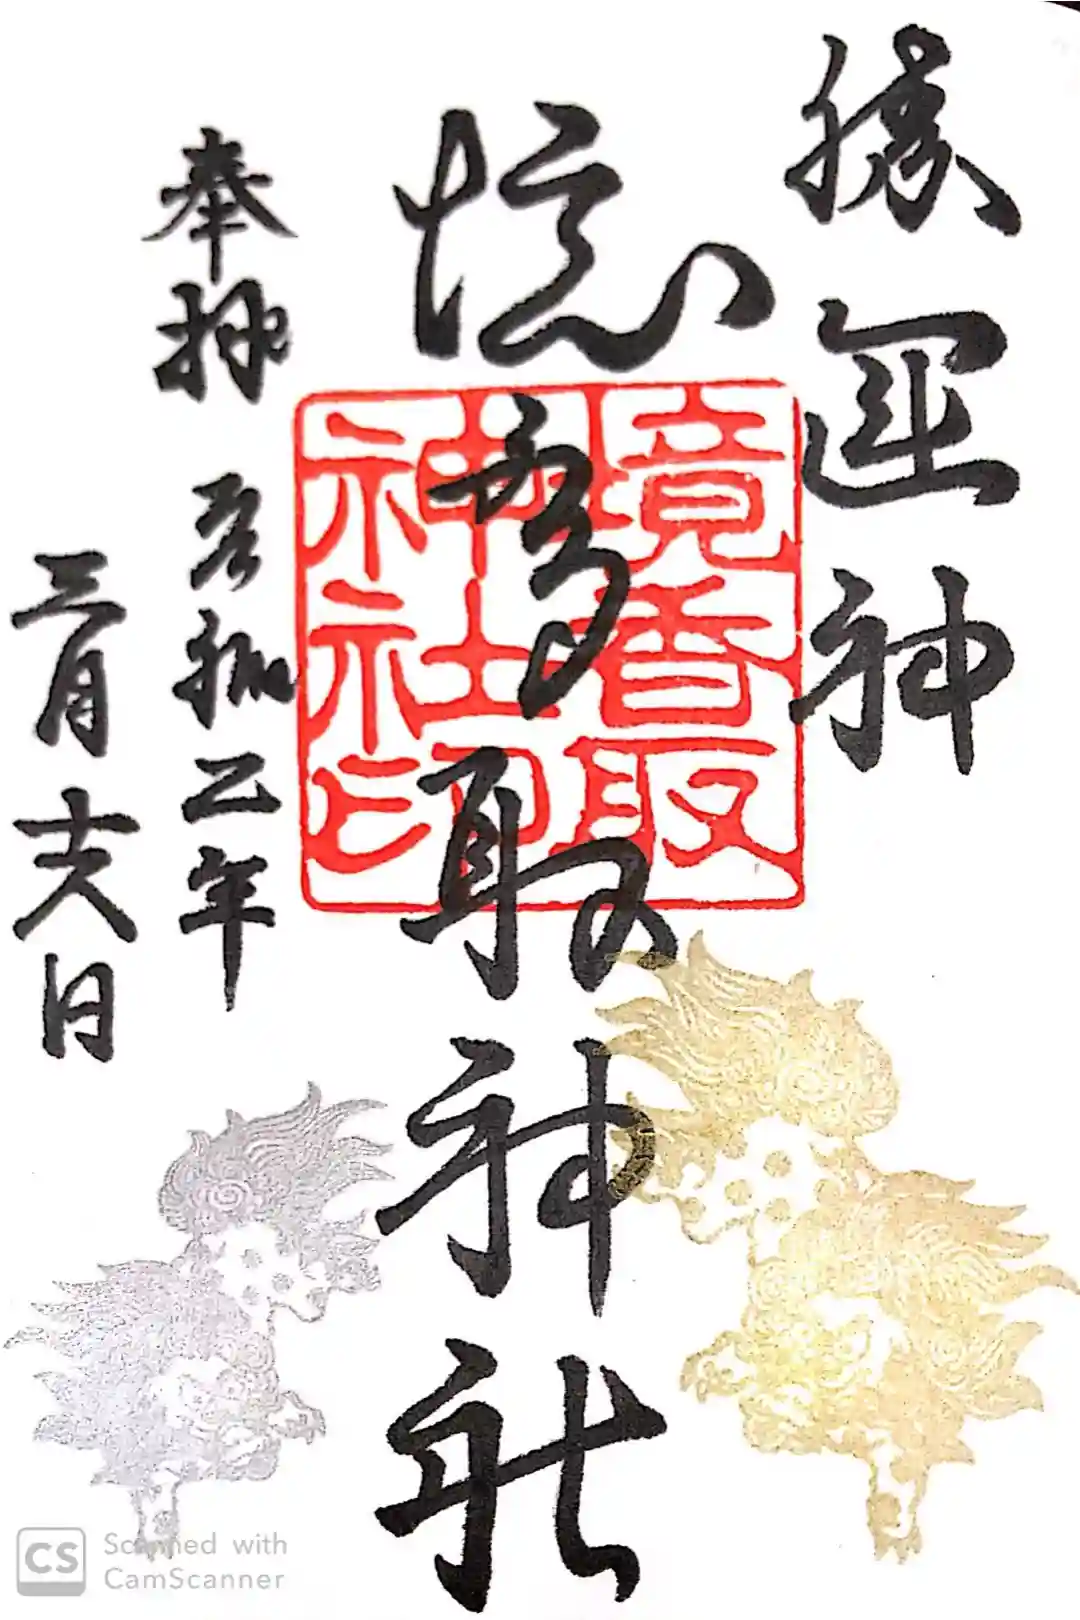 勝運神
境香取神社
奉拝 令和二年
三月十六日
境香取
神社印
CS Scanned with
CamScanner